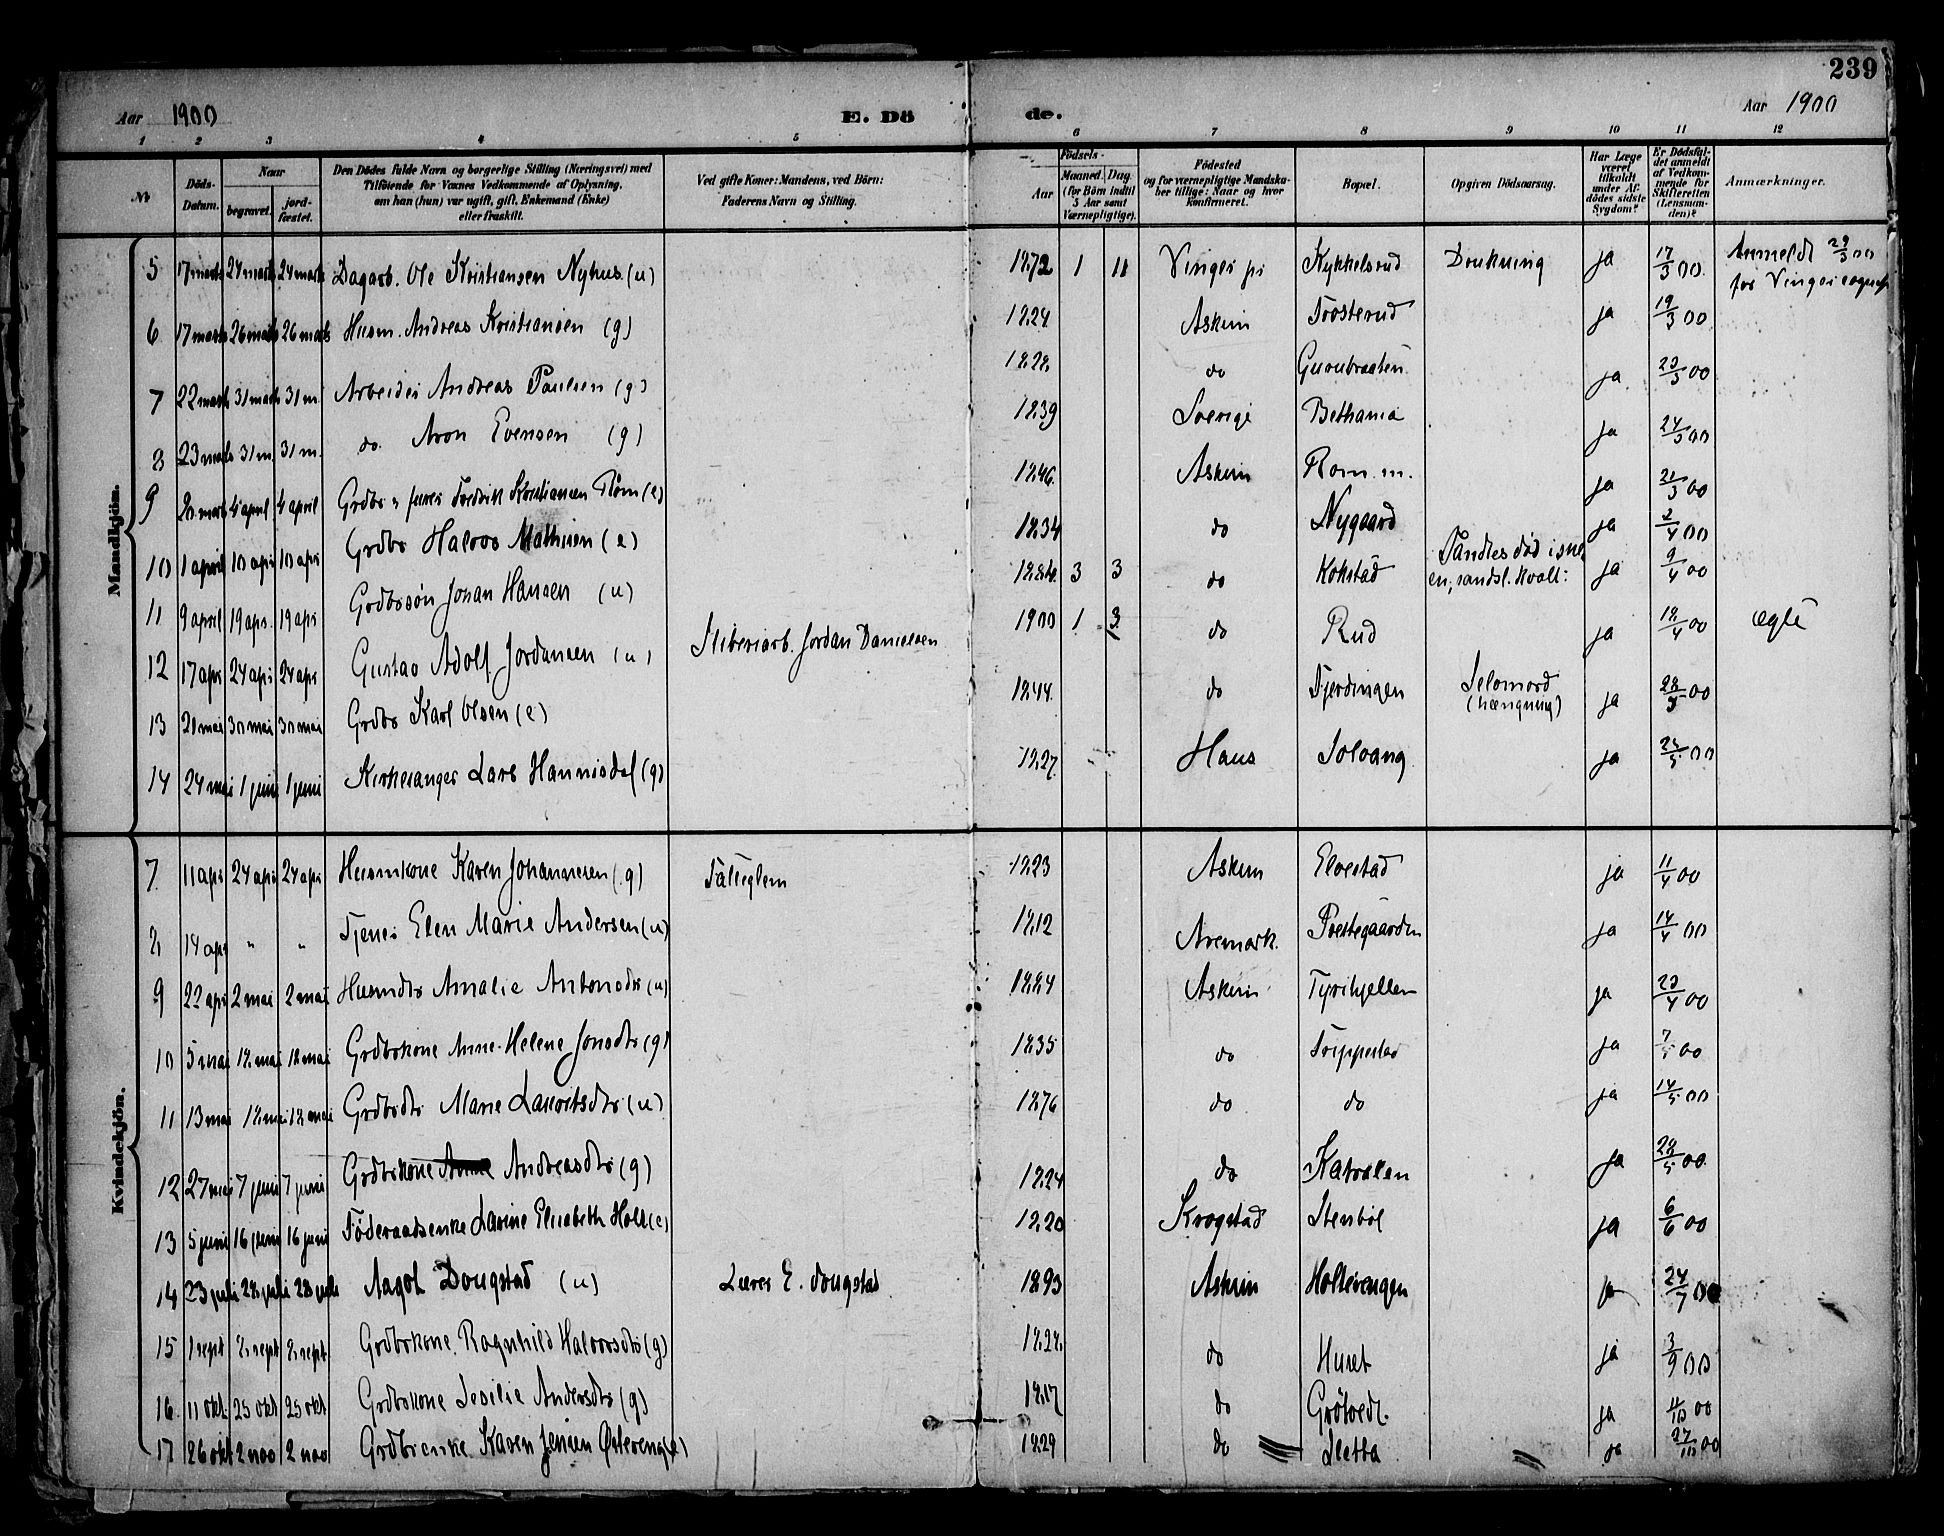 239
Aar 1900 E. Dö de. Aar 1900
1 2 3 4 5 6 7 8 9 10 11 12
No
Döds-Datum.
Naar
begravet. jordfæstet.
Den Dödes fulde Navn og borgerlige Stilling (Næringsvei) med
Tilföiende for Voxnes Vedkommende af Oplysning,
om han (hun) var ugift, gift, Enkemand (Enke)
eller fraskilt.
Ved gifte Koner: Mandens, ved Börn:
Faderens Navn og Stilling.
Födsels-
Aar
Maaned. Dag.
(for Börn indtil
5 Aar samt
Værnepligtige).
Födested
og for værnepligtige Mandskaber tillige: Naar og hvor
konfirmeret.
Bopæl.
Opgiven Dödsaarsag.
Har Læge
været
tilkaldt
under Afdödes sidste
Sygdom?
Er Dödsfaldet anmeldt
af Vedkommende for
Skifteretten
(Lensmanden)?
Anmærkninger.
Mandkjön.
5 17 marts 24 marts 24 marts Dagarb. Ole Kristiansen Nyhus (u) 1872 1 11 Vinger pr Kykkelsrud Drukning ja 17/3 00. Anmeldt 29/3 00
for Vinger sognepr
6 17 marts 26 marts 26 marts Husm. Andreas Kristiansen (g) 1824 Askim Trosterud ja 19/3 00
7 22 marts 31 marts 31 m. Arbeider Andreas Paulsen (g) 1828 do ja 23/3 00
8 23 marts 31 m. 31 m. do. Aron Evensen (g) 1839 Sverige Bethania ja 24/3 00
9 4 april 4 april Grdbr Fredrik Kristiansen Röm (e) 1846 Askim Rom m. ja 21/3 00
10 1 april 10 apr 10 apr Grdbr Halvor Mathisen (e) 1834 do Nygaard ja 2/4 00
11 9 april 19 apr. 19 apr Grdbrsön Johan Hansen (u) 1884 3 3 do Kokstad Fandtes död i ja 9/4 00
12 17 apr 24 apr 24 apr Gustav Adolf Jordansen (u) Sliberiarb. Jordan Danielsen 1900 1 3 do Rud ja 18/4 00 ægte
13 28 mai 30 mai 30 mai Grdbr Karl Olsen (e) 1844 do Fjerdingen Selvmord
(hængning) ja 28/5 00
14 24 mai 1 juni 1 juni Kirkesanger Lars Hannisdal (g) 1827 Haus Solvang ja 25/5 00
Kvindekjön.
7 11 apr 24 apr 24 apr Husmkone Karen Johannesen (g) Fattiglem 1823 Askim Elvestad ja 11/4 00
8 14 apr " " Tjener Elen Marie Andersen (u) 1812 Aremark. Prestegaarden ja 14/4 00
9 22 apr 2 mai 2 mai Husmdtr Amalie Antonsdtr (u) 1884 Askim Tyrihjellen ja 23/4 00
10 5 mai 12 mai 12 mai Grdbrkone Anne Helene Jonsdtr (g) 1835 do Trippestad ja 7/5 00
11 13 mai 18 mai 18 mai Grdbrdtr Marie Lauritsdtr (u) 1876 do do ja 14/5 00
12 27 mai 7 juni 7 juni Grdbrkone Anne Andreasdtr (g) 1824 do Katralen ja 28/5 00
13 5 juni 16 juni 16 juni Föderaadsenke Larine Elisabeth Holt (e) 1820 Krogstad Stenböl ja 6/6 00
14 23 juli 28 juli 28 juli Aagot Dougstad (u) Lærer E. Dougstad 1893 Askim Holtevengen ja 24/7 00
15 1 sept 8 sept 8 sept Grdbrkone Ragnhild Halvorsdtr (g) 1828 do ja 3/9 00
16 11 okt 25 okt 25 okt Grdbrkone Sesilie Andersdtr (g) 1817 do Grötvedt ja 11/10 00
17 26 okt 2 nov 2 nov Grdbrenke Karen Jensen Östereng (e) 1829 do Sletta ja 27/10 00